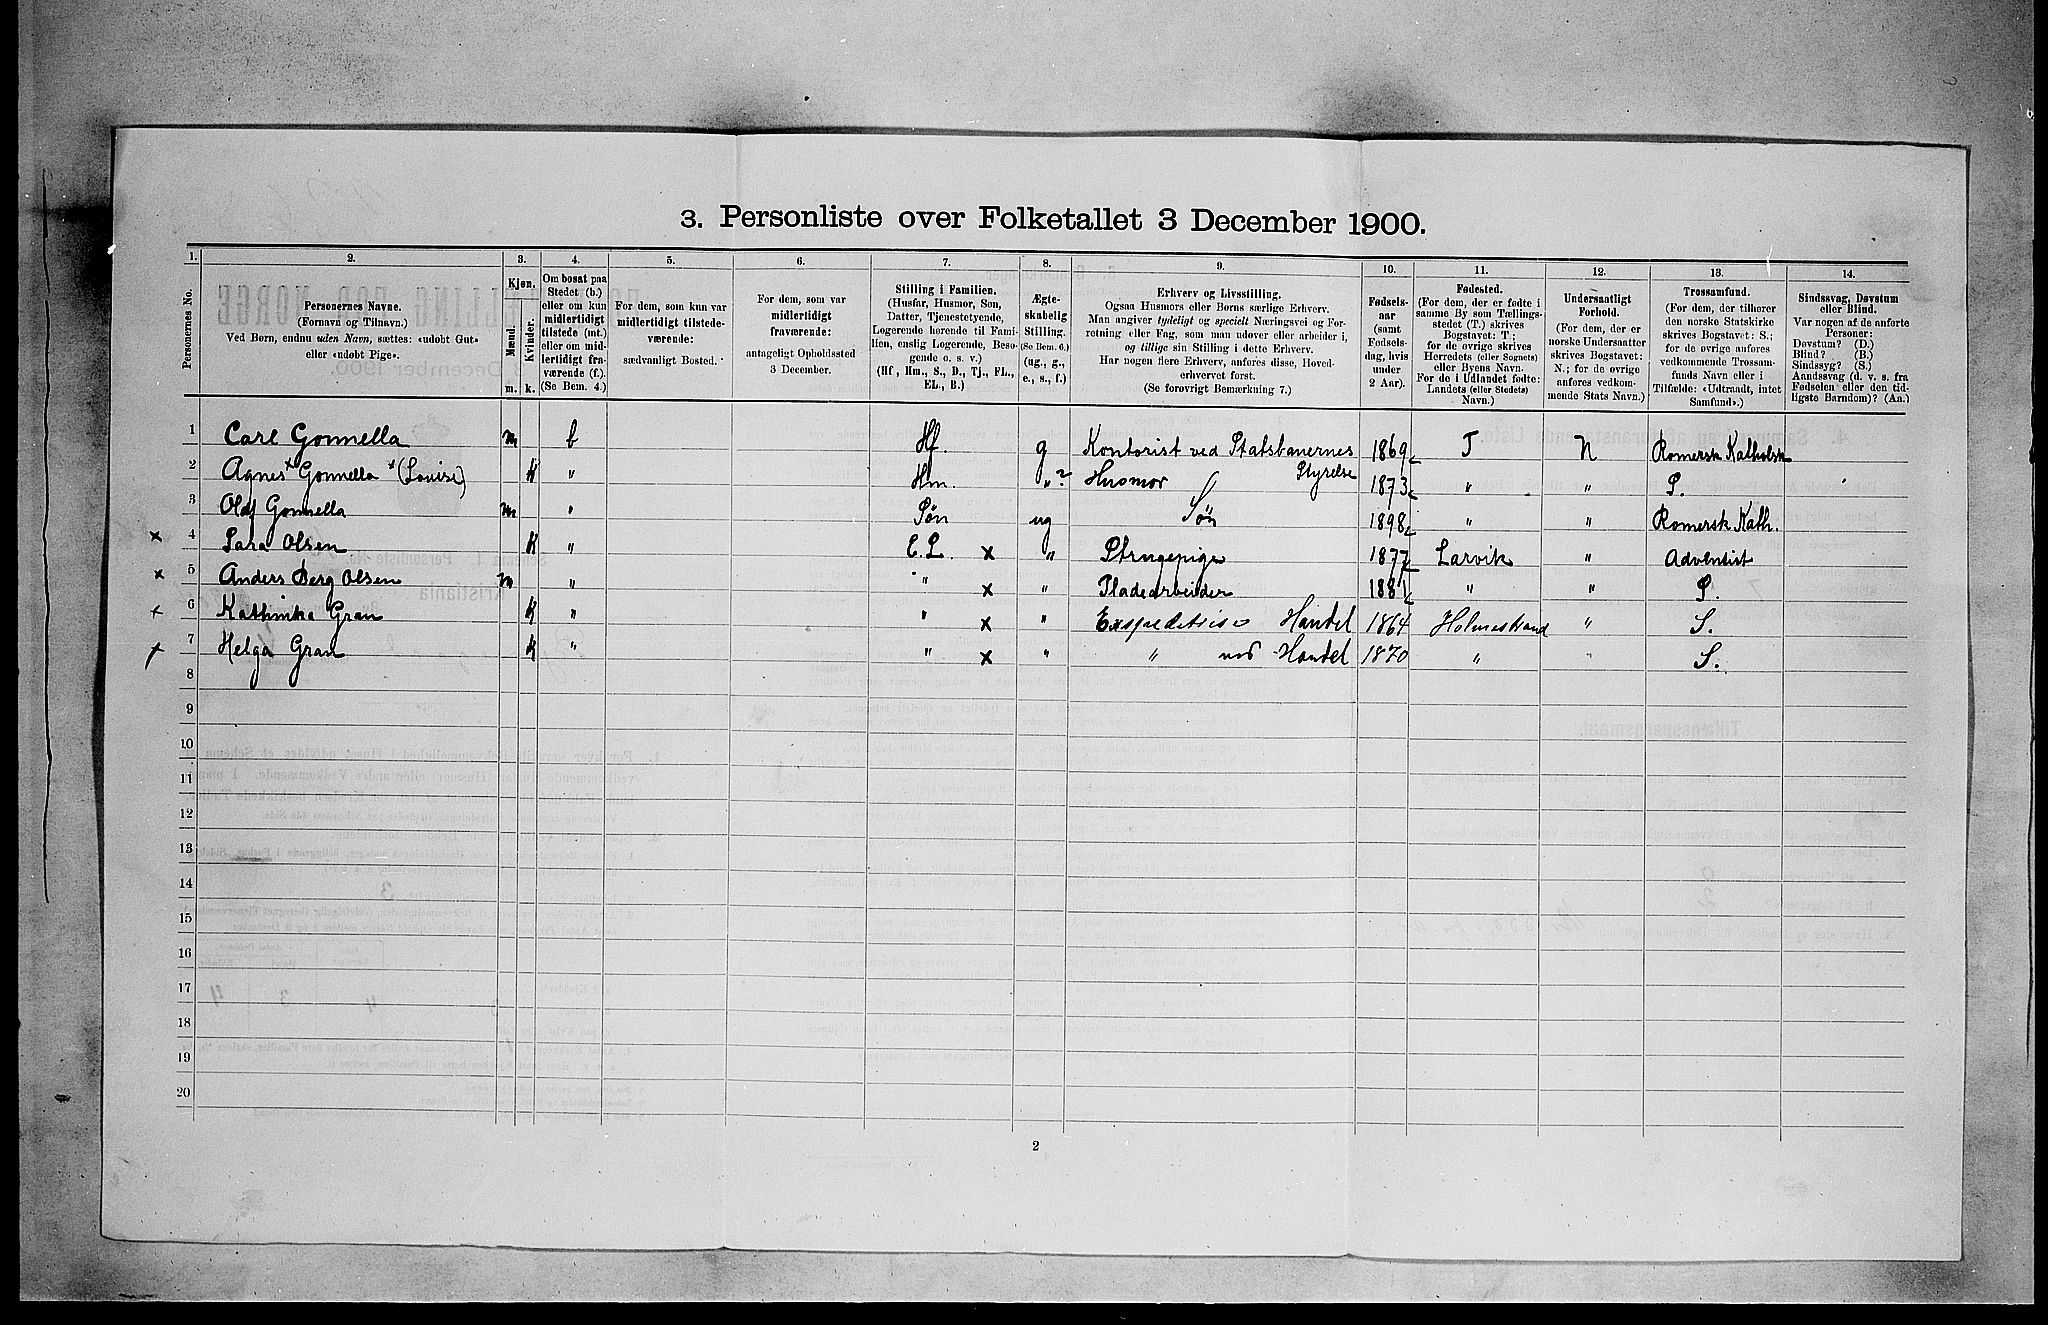 3. Personliste over Folketallet 3 December 1900.
1. 2. 3. 4. 5. 6. 7. 8. 9. 10. 11. 12. 13. 14.
Personernes No.
Personernes Navne.
(Fornavn og Tilnavn.)
Ved Børn, endnu uden Navn, sættes: «udobt Gut»
eller «udobt Pige».
Kjøn.
Mænd.
Kvinder.
m. k.
Om bosat paa
Stedet (b.)
eller om kun
midlertidigt
tilstede (mt.)
eller om mid-
lertidigt fra-
værende (f.).
(Se Bem. 4.)
For dem, som kun var
midlertidigt tilstede-
værende:
sædvanligt Bosted.
For dem, som var
midlertidigt
fraværende:
antageligt Opholdssted
3 December.
Stilling i Familien.
(Husfar, Husmor, Søn,
Datter, Tjenestetyende,
Logerende hørende til Fami-
lien, enslig Logerende, Besø-
gende o. s. v.)
(Hf., Hm., S., D., Tj., FL.,
EL., B.)
Ægte-
skabelig
Stilling.
(Se Bem. 6.)
(ug., g.,
e., s., f.)
Erhverv og Livsstilling.
Ogsaa Husmors eller Børns særlige Erhverv.
Man angiver tydeligt og specielt Næringsvei og For-
retning eller Fag, som man udøver eller arbeider i,
og tillige sin Stilling i dette Erhverv.
Har nogen flere Erhverv, anføres disse, Hoved-
erhvervet først.
(Se forøvrigt Bemærkning 7.)
Fødsels-
aar
(samt
Fødsels-
dag, hvis
under
2 Aar).
Fødested.
(For dem, der er fødte i
samme By som Tællings-
stedet (T.) skrives
Bogstavet: T;
for de øvrige skrives
Herredets (eller Sognets)
eller Byens Navn.
For de i Udlandet fødte:
Landets (eller Stedets)
Navn.)
Undersaatligt
Forhold.
(For dem, der er
norske Undersaatter
skrives Bogstavet:
N.; for de øvrige
anføres vedkom-
mende Stats Navn.)
Trossamfund.
(For dem, der tilhører
den norske Statskirke
skrives Bogstavet: S.;
for de øvrige anføres
vedkommende Trossam-
funds Navn eller i
Tilfælde: «Udtraadt, intet
Samfund».)
Sindssvag, Døvstum
eller Blind.
Var nogen af de anførte
Personer:
Døvstum? (D.)
Blind? (B.)
Sindssyg? (S.)
Aandssvag (d. v. s. fra
Fødselen eller den tid-
ligste Barndom)? (Aa.)
1 Carl Gonnella m b Hf. g Kontorist ved Statsbanernes Styrelse 1869 T N Romersk Katholsk
2 Agnes Gonnella (Louise) K " Hm. " ? Husmor 1873 " " S.
3 Olaf Gonnella m " Søn ug Søn 1898 " " Romersk Kath.
× 4 Sara Olsen K " E. L. × " Strygepige 1877 Larvik " Adventist
× 5 Anders Berg Olsen m " " × " Pladearbeider 1881 " " S.
× 6 Kathinka Gran K " " × " Handel 1864 Holmestrand " S.
× 7 Helga Gran K " " × " " ved Handel 1870 " " S.
8
9
10
11
12
13
14
15
16
17
18
19
20
2